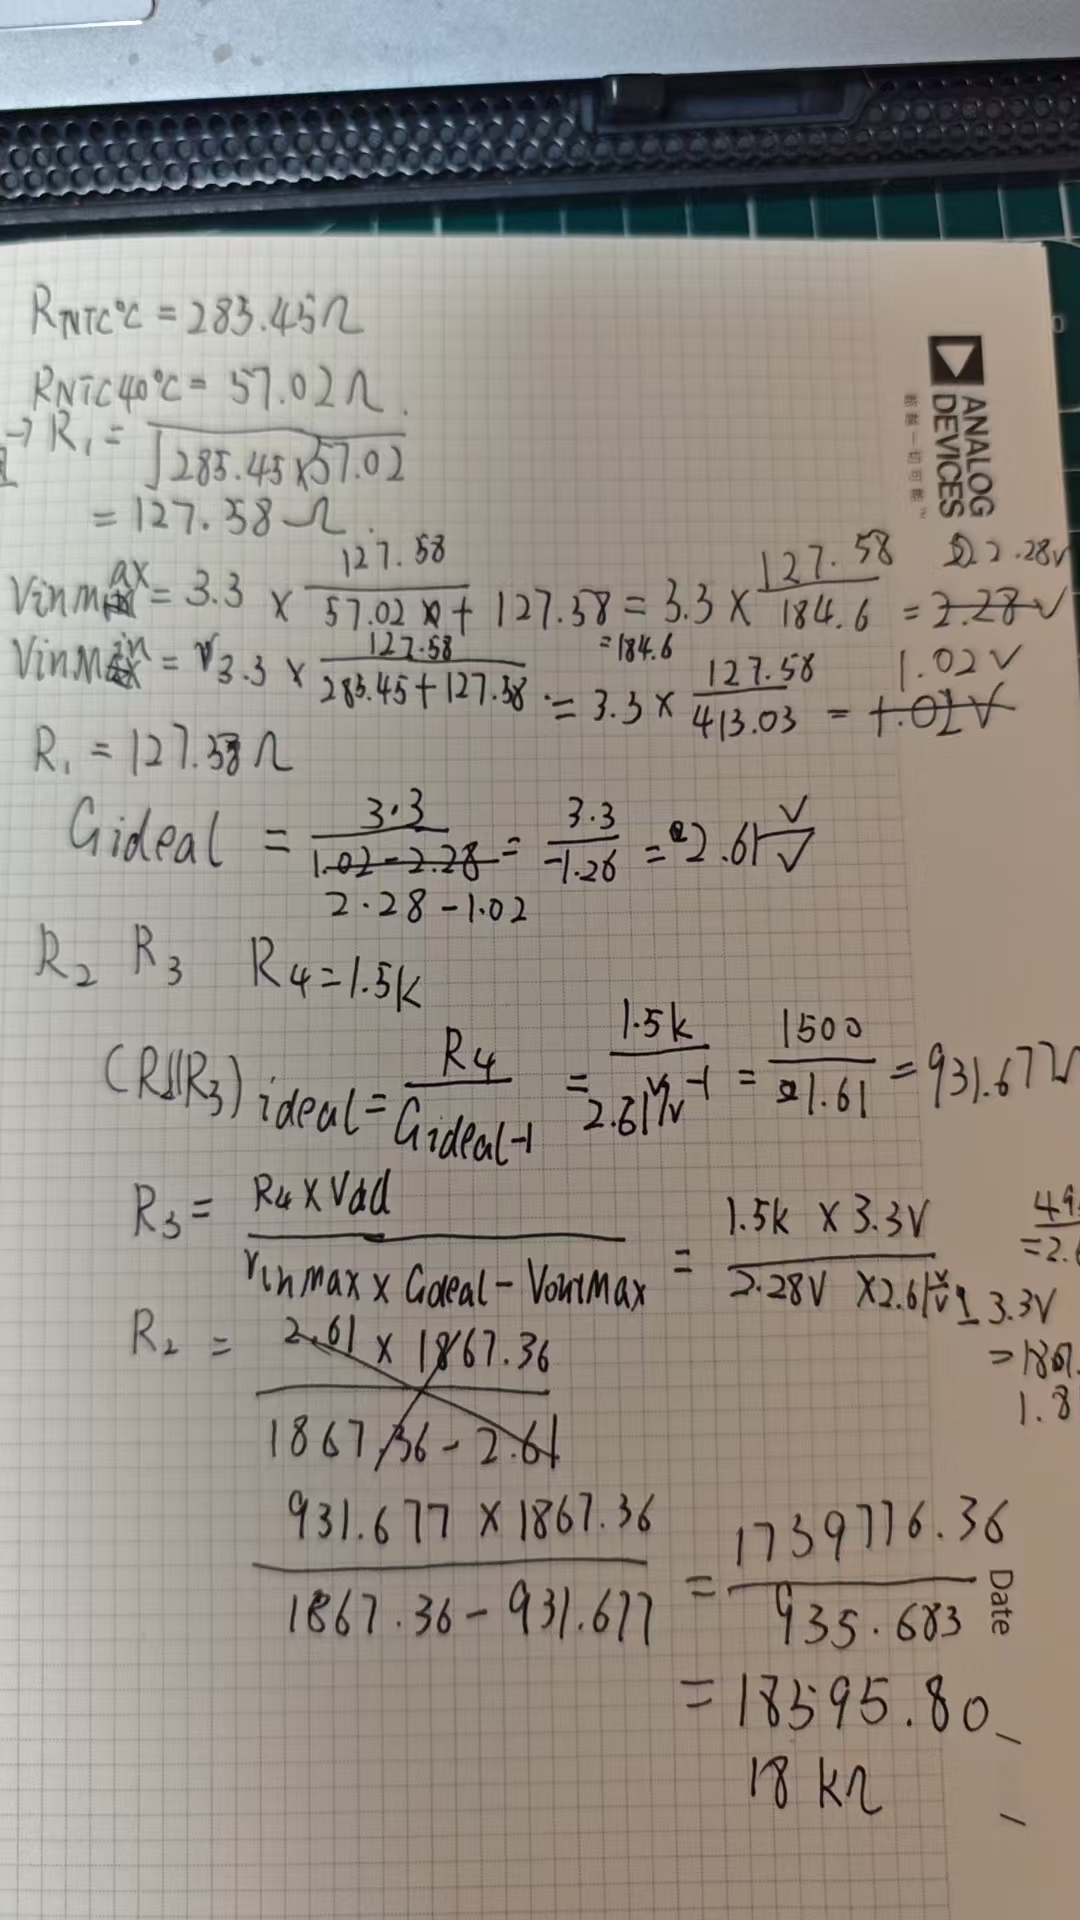 RNTC°C = 283.45Ω
RNTC40°C = 57.02Ω.
→ R₁ = √285.45×57.02
= 127.58Ω.
Vinmax = 3.3 × 127.58 / 57.02 + 127.58 = 3.3 × 127.58 / 184.6 = 2.28V 2.28V
=184.6
Vinmin = 3.3 × 127.58 / 285.45 + 127.58 = 3.3 × 127.58 / 413.03 = 1.02V 1.02V
R₁ = 127.58Ω
Gideal = 3.3 / 1.02-2.28 = 3.3 / -1.26 = 2.61 V/V
2.28-1.02
R₂ R₃ R₄=1.5k
(R₂||R₃)ideal = R₄ / Gideal-1 = 1.5k / 2.61V/V-1 = 1500 / 1.61 = 931.677Ω
R₃ = R₄ × Vdd / Vinmax × Gideal - Voutmax = 1.5k × 3.3V / 2.28V × 2.61V/V - 3.3V
=2.6
=1867.
1.8
R₂ = 2.61 × 1867.36 / 1867.36 - 2.61
931.677 × 1867.36 / 1867.36 - 931.677 = 1739776.36 / 935.683
= 18595.80
18 kΩ
ANALOG
DEVICES
超越一切可能™
Date